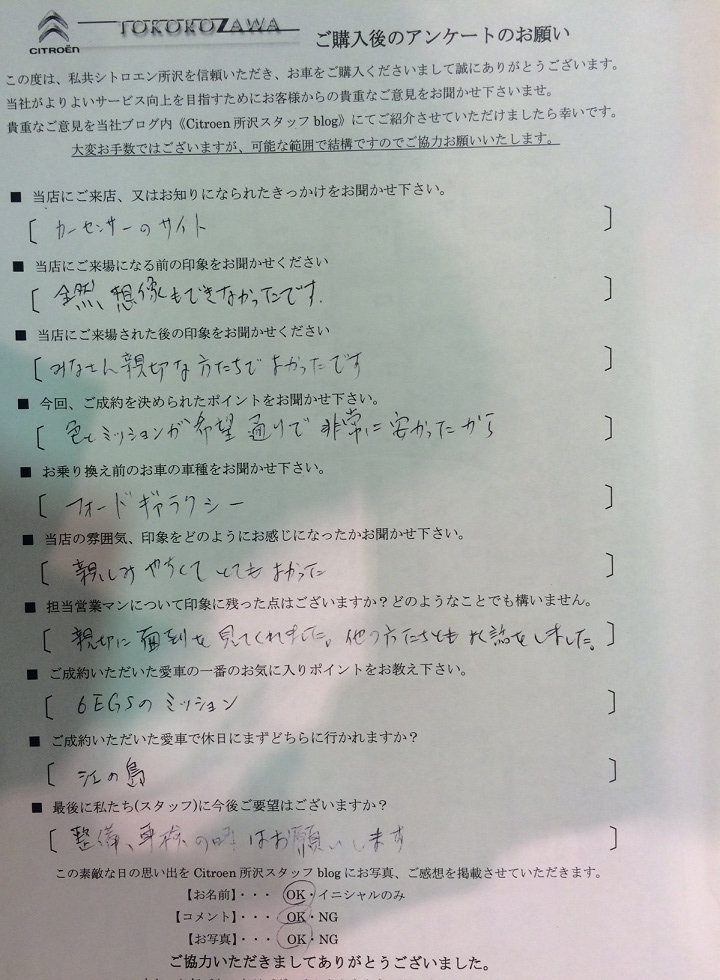 CITROËN
TOKOROZAWA
ご購入後のアンケートのお願い
この度は、私共シトロエン所沢を信頼いただき、お車をご購入くださいまして誠にありがとうございます。
当社がよりよいサービス向上を目指すためにお客様からの貴重なご意見をお聞かせ下さいませ。
貴重なご意見を当社ブログ内《Citroen 所沢スタッフ blog》にてご紹介させていただけましたら幸いです。
大変お手数ではございますが、可能な範囲で結構ですのでご協力お願いいたします。
■ 当店にご来店、又はお知りになられたきっかけをお聞かせ下さい。
[ カーセンサーのサイト ]
■ 当店にご来場になる前の印象をお聞かせください
[ 全然、想像もできなかったです. ]
■ 当店にご来場された後の印象をお聞かせください
[ みなさん親切な方たちでよかったです ]
■ 今回、ご成約を決められたポイントをお聞かせ下さい。
[ 色とミッションが希望通りで非常に安かったから ]
■ お乗り換え前のお車の車種をお聞かせ下さい。
[ フォードギャラクシー ]
■ 当店の雰囲気、印象をどのようにお感じになったかお聞かせ下さい。
[ 親しみやすくてとてもよかった ]
■ 担当営業マンについて印象に残った点はございますか？どのようなことでも構いません。
[ 親切に面倒を見てくれました。他の方たちともお話をしました。 ]
■ ご成約いただいた愛車の一番のお気に入りポイントをお教え下さい。
[ 6EGSのミッション ]
■ ご成約いただいた愛車で休日にまずどちらに行かれますか？
[ 江の島 ]
■ 最後に私たち(スタッフ)に今後ご要望はございますか？
[ 整備、車検の時はお願いします ]
この素敵な日の思い出を Citroen 所沢スタッフ blog にお写真、ご感想を掲載させていただきます。
【お名前】・・・ OK・イニシャルのみ
【コメント】・・・ OK・NG
【お写真】・・・ OK・NG
ご協力いただきましてありがとうございました。